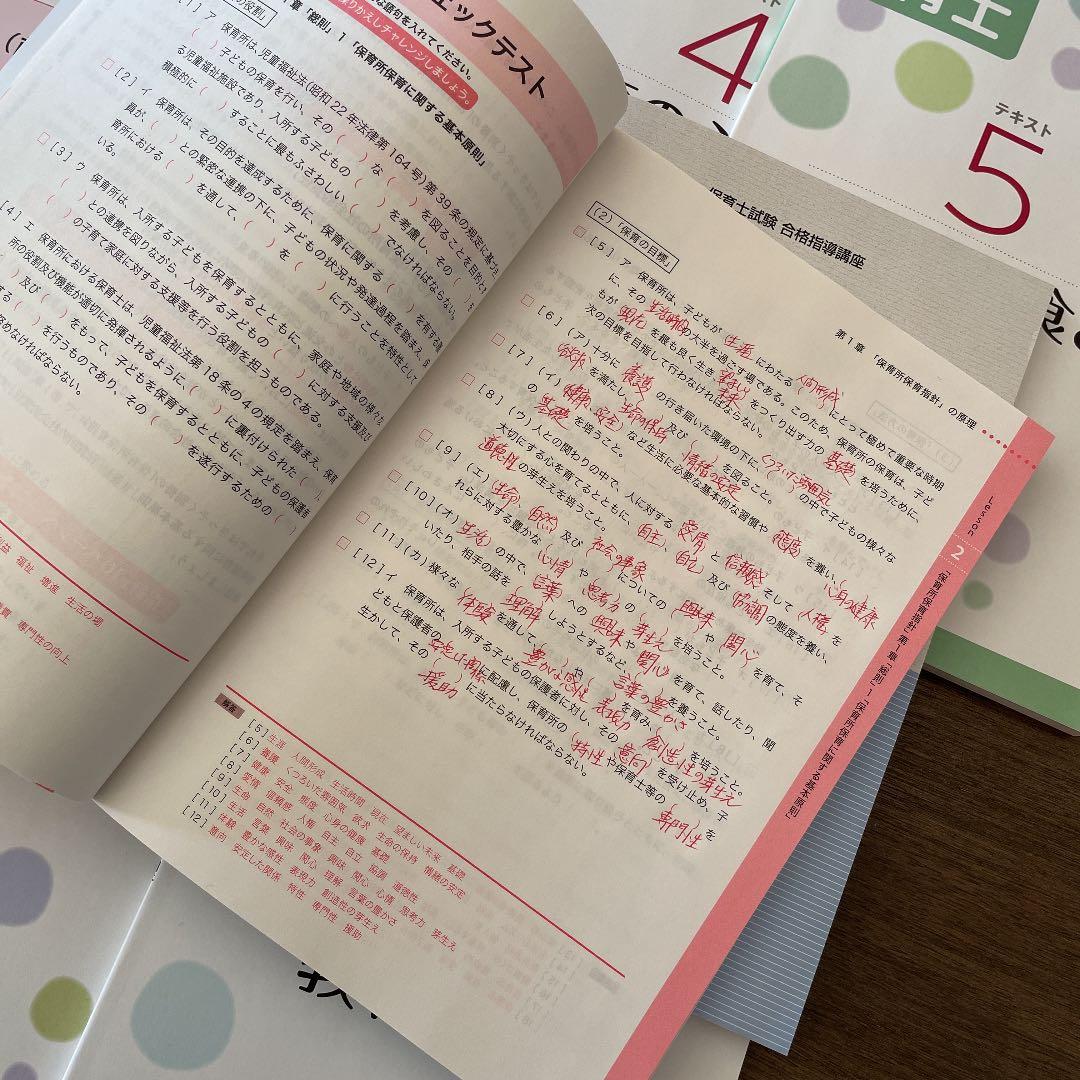 ェックテスト
な語句を入れてください。
繰りかえしチャレンジしましょう。
章「総則」1「保育所保育に関する基本原則」
の役割」
[1] ア 保育所は、児童福祉法(昭和22年法律第164号)第39条の規定に基づき
( )子どもの保育を行い、その( )な( )を図ることを目的とす
る児童福祉施設であり、入所する子どもの( )を考慮し、その( )を
積極的に( )することに最もふさわしい( )でなければならない。
[2] イ 保育所は、その目的を達成するために、保育に関する( )を有する
員が、( )との緊密な連携の下に、子どもの状況や発達過程を踏まえ、
育所における( )を通して、( )を( )に行うことを特性として
いる。
[3] ウ 保育所は、入所する子どもを保育するとともに、家庭や地域の
( )との連携を図りながら、入所する子どもの( )に対する支援及び
( )の子育て家庭に対する支援等を行う役割を担うものである。
[4] エ 保育所における保育士は、児童福祉法第18条の4の規定を踏まえ、保
所の役割及び機能が適切に発揮されるように、( )に裏付けられた( )、
( )及び( )をもって、子どもを保育するとともに、子どもの保護者
する( )を行うものであり、その( )を遂行するための
努めなければならない。
福祉 増進 生活の場
専門性の向上
第1章 「保育所保育指針」の原理
(2)「保育の目標」
[5] ア 保育所は、子どもが(生涯)にわたる(人間形成)にとって極めて重要な時期
に、その(生活時間)の大半を過ごす場である。このため、保育所の保育は、子ど
もが(現在)を最も良く生き、(望ましい未来)をつくり出す力の(基礎)を培うために、
次の目標を目指して行わなければならない。
[6] (ア)十分に(養護)の行き届いた環境の下に、(くつろいだ雰囲気)の中で子どもの様々な
(欲求)を満たし、(生命の保持)及び(情緒の安定)を図ること。
[7] (イ)(健康、安全)など生活に必要な基本的な習慣や(態度)を養い、(心身の健康)の
(基礎)を培うこと。
[8] (ウ)人との関わりの中で、人に対する(愛情)と(信頼感)、そして(人権)を
大切にする心を育てるとともに、(自主)、(自立)及び(協調)の態度を養い、
(道徳性)の芽生えを培うこと。
[9] (エ)(生命)、(自然)及び(社会の事象)についての(興味)や(関心)を育て、そ
れらに対する豊かな(心情)や(思考力)の(芽生え)を培うこと。
[10] (オ)(生活)の中で、(言葉)への(興味)や(関心)を育て、話したり、聞
いたり、相手の話を(理解)しようとするなど、(言葉の豊かさ)を養うこと。
[11] (カ)様々な(体験)を通して、(豊かな感性)や(表現力)を育み、(創造性の芽生え)を培うこと。
[12] イ 保育所は、入所する子どもの保護者に対し、その(意向)を受け止め、子
どもと保護者の(安定した関係)に配慮し、保育所の(特性)や保育士等の(専門性)を
生かして、その(援助)に当たらなければならない。
解答
[5] 生涯 人間形成 生活時間 現在 望ましい未来 基礎
[6] 養護 くつろいだ雰囲気 欲求 生命の保持 情緒の安定
[7] 健康 安全 態度 心身の健康 基礎
[8] 愛情 信頼感 人権 自主 自立 協調 道徳性
[9] 生命 自然 社会の事象 興味 関心 心情 思考力 芽生え
[10] 生活 言葉 興味 関心 理解 言葉の豊かさ
[11] 体験 豊かな感性 表現力 創造性の芽生え
[12] 意向 安定した関係 特性 専門性 援助
Lesson
2
「保育所保育指針」第1章「総則」1「保育所保育に関する基本原則」
保育士試験 合格指導講座
テキスト
4
テキスト
5
育士